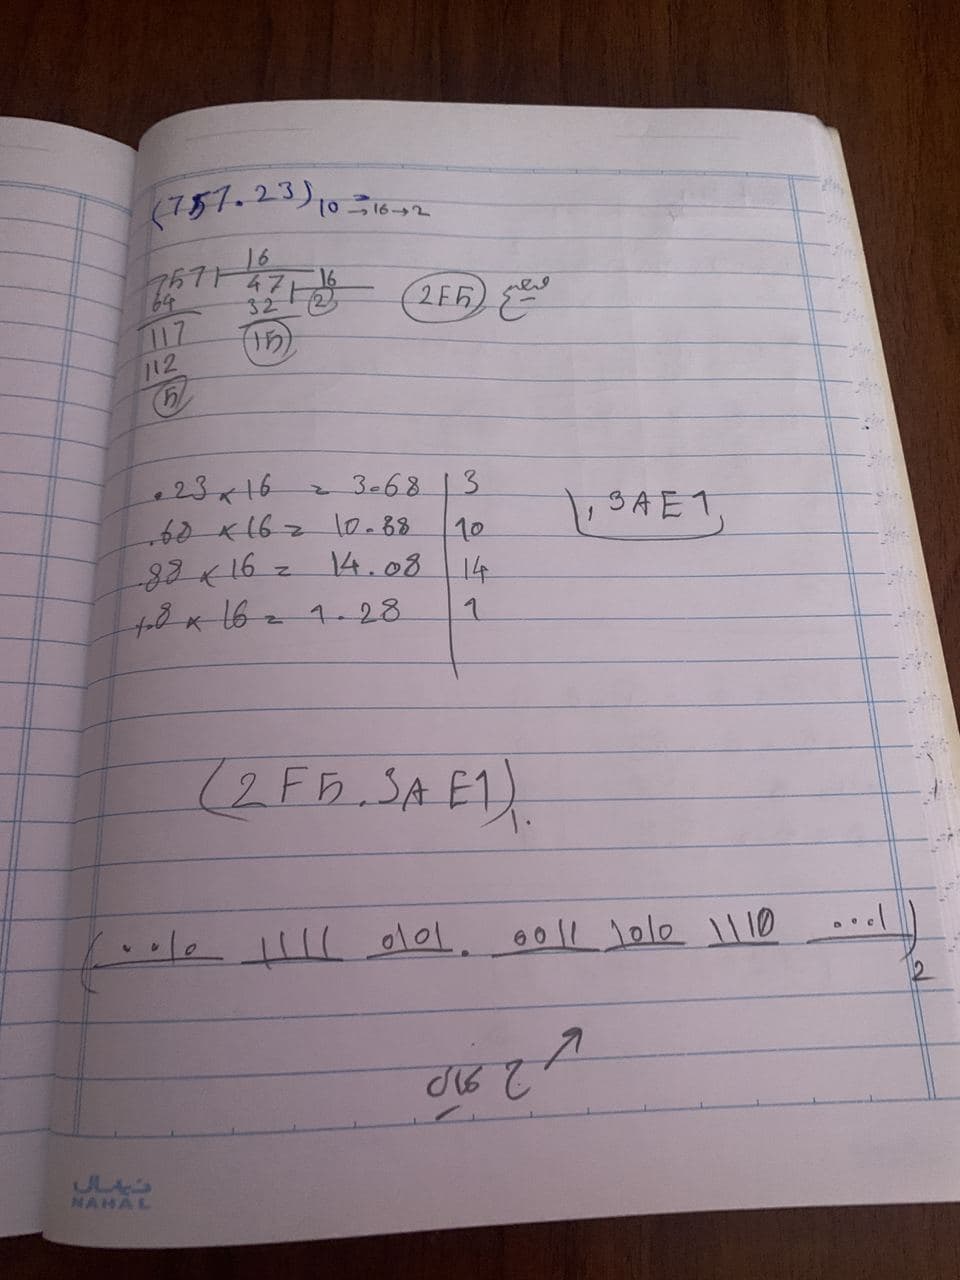 (757.23)10 → 16 → 2
757 16
64 47 16
117 32 2
112 15
5
2F5 صحیح
.23 × 16 = 3.68 | 3
.68 × 16 = 10.88 | 10
.88 × 16 = 14.08 | 14
.08 × 16 = 1.28 | 1
, 3AE1
(2F5.3AE1)1.
(0010 1111 0101 . 0011 1010 1110 0001)2
نهال
NAHAL